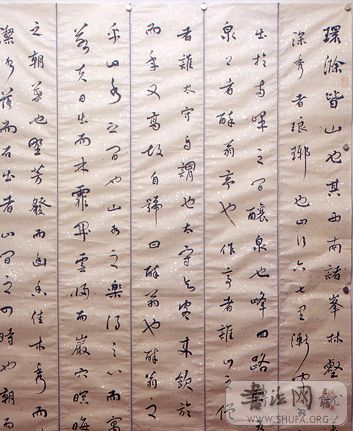 環滁皆山也其西南諸峯林壑
深秀者琅瑯也山行六七里漸
出於兩峰之間釀泉也峰回路
泉上者醉翁亭也作亭者誰山之僧
者誰太守自謂也太守與客來飲於
而年又高故自號曰醉翁也醉翁之
乎山水之間也山水之樂得之心而寓
若夫日出而林霏開雲歸而巖穴暝晦
之朝暮也野芳發而幽香佳木秀而
潔水落而石出者山間之四時也朝而
書法网
WWW.SHUFA.ORG